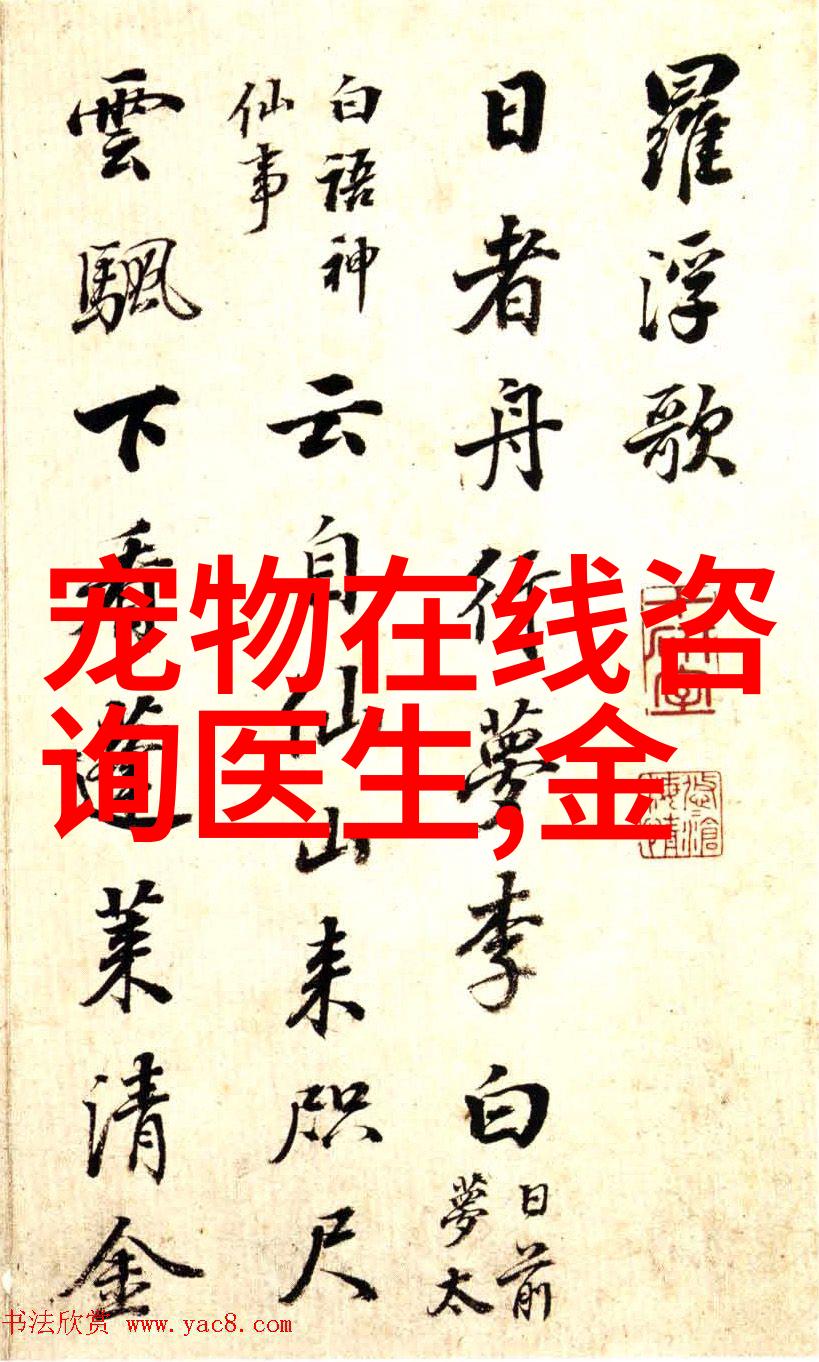 羅浮歌
日者舟行夢李白
日前
夢太
白語神
仙事
云自仙山来咫尺
雲颿下看蓬萊清金
宠物在线咨
询医生,金
书法欣赏 www.yac8.com